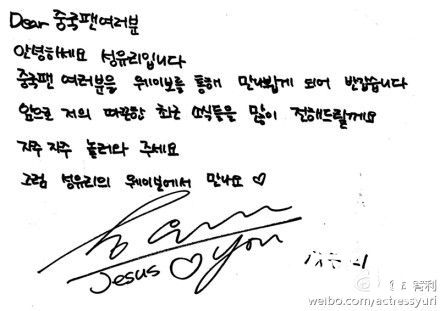 Dear 중국팬여러분
안녕하세요 성유리입니다
중국팬 여러분을 웨이보를 통해 만나뵙게 되어 반갑습니다
앞으로 저의 따끈한 최근 소식들을 많이 전해드릴게요
자주 자주 놀러와 주세요
그럼 성유리의 웨이보에서 만나요 ♡
Jesus ♡ you
weibo.com/actressyuri